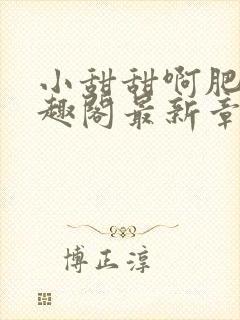 小甜甜啊肥
趣阁最新章
博正淳